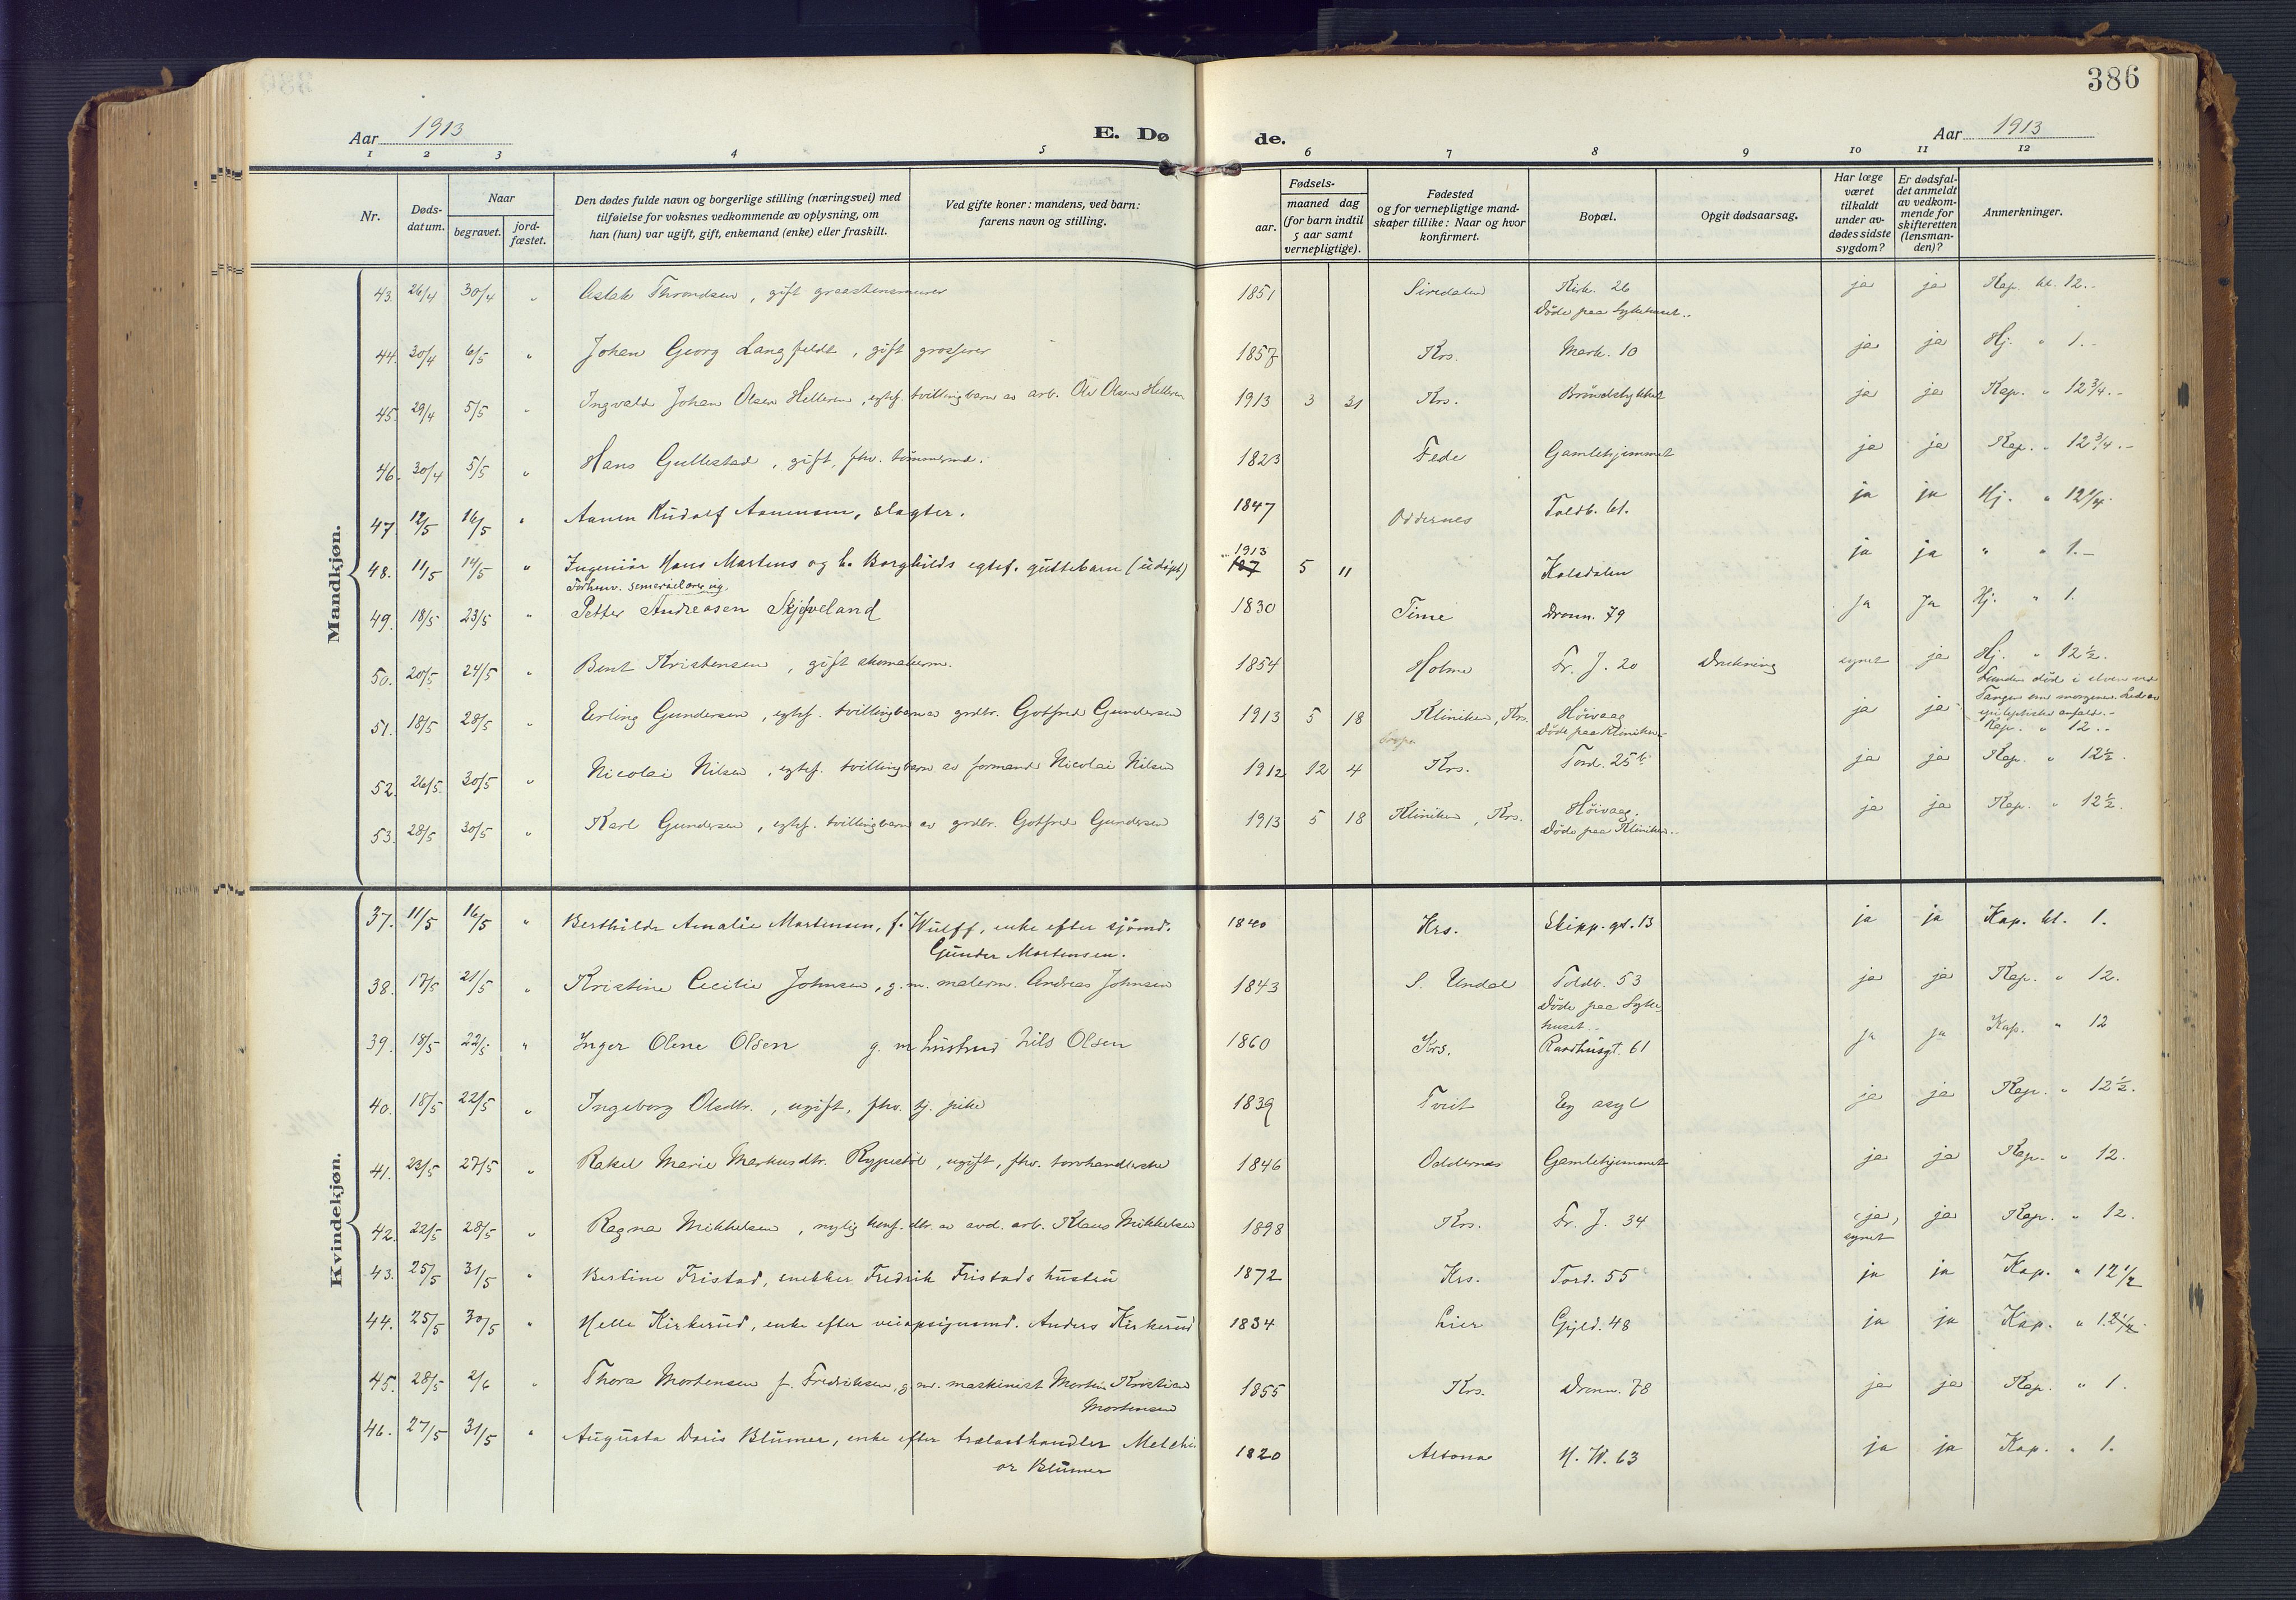 386
Aar 1913
E. Dø
de.
Aar 1913
1 2 3 4 5 6 7 8 9 10 11 12
Nr.
Døds-
datum.
Naar
begravet.
jord-
fæstet.
Den dødes fulde navn og borgerlige stilling (næringsvei) med
tilføielse for voksnes vedkommende av oplysning, om
han (hun) var ugift, gift, enkemand (enke) eller fraskilt.
Ved gifte koner: mandens, ved barn:
farens navn og stilling.
Fødsels-
aar.
maaned dag
(for barn indtil
5 aar samt
vernepligtige).
Fødested
og for vernepligtige mand-
skaper tillike: Naar og hvor
konfirmert.
Bopæl.
Opgit dødsaarsag.
Har læge
været
tilkaldt
under av-
dødes sidste
sygdom?
Er dødsfal-
det anmeldt
av vedkom-
mende for
skifteretten
(lensman-
den)?
Anmerkninger.
Mandkjøn.
43. 26/4 30/4 " Aslak Throndsen, gift graastensmurer 1851 Siredalen Kirk. 26 ja ja Kap. kl. 12.-
Døde paa Sykehuset.
44. 30/4 6/5 " Johan Georg Langfeldt, gift grosserer 1857 Krs. Mark. 10 ja ja Hj. " 1.-
45. 29/4 5/5 " Ingvald Johan Olsen Helleren, egtef. tvillingbarn av arb. Ole Olsen Helleren 1913 3 31 Krs. Brøndstykket ja ja Kap. " 12 3/4.-
46. 30/4 5/5 " Hans Gullestad, gift, fhv. tømmermd. 1823 Fede Gamlehjemmet ja ja Kap. " 12 3/4.-
47. 12/5 16/5 " Aanen Rudolf Aanensen, slagter. 1847 Oddernes Toldb. 61. ja ja Hj. " 12 1/4.
48. 11/5 14/5 " Ingeniør Hans Martens og h. Borghilds egtef. guttebarn (udøpt) 1913 5 11 Kolsdalen ja ja " " 1.-
49. 18/5 23/5 " Petter Andreasen Skjæveland 1830 Time Dronn. 79 ja ja Hj. " 1.
50. 20/5 24/5 " Bent Kristensen, gift skomakerm. 1854 Holme Fr. J. 20 Drukning synet ja Hj. " 12 1/2.
Funden død i elven ved
Tangen om morgenen. Led av
epileptiske anfald.-
51. 18/5 28/5 " Erling Gundersen, egtef. tvillingbarn av grdbr. Gotfred Gundersen 1913 5 18 Kliniken, Krs. Høivaag ja ja Kap. " 12.-
Døde paa Kliniken.-
52. 26/5 30/5 " Nicolai Nilsen, egtef. tvillingbarn av formand Nicolai Nilsen 1912 12 4 Krs. Tord. 25 b ja ja Kap. " 12 1/2.
53. 28/5 30/5 " Karl Gundersen, egtef. tvillingbarn av grdbr. Gotfred Gundersen 1913 5 18 Kliniken, Krs. Høivaag. ja ja Kap. " 12 1/2.
Døde paa Kliniken.-
Kvindekjøn.
37. 11/5 16/5 " Berthilde Amalie Mortensen, f. Wulff, enke efter sjømd. 1840 Krs. Skipp. gt. 13 ja ja Kap. kl. 1.
Gunder Mortensen.
38. 17/5 21/5 " Kristine Cecilie Johnsen, g. m. malerm. Andreas Johnsen 1843 S. Undal Toldb. 53 ja ja Kap. " 12.
Døde paa Syke-
huset.-
39. 18/5 22/5 " Inger Olene Olsen g. m. Nils Olsen 1860 Krs. Raadhusgt. 61 ja ja Kap. " 12
40. 18/5 22/5 " Ingeborg Olsdtr., ugift, fhv. tj. pike 1839 Tveit Eg asyl ja ja Kap. " 12 1/2.
41. 23/5 27/5 " Rakel Marie Markusdtr. Rypestøl, ugift, fhv. torvhandlerske 1846 Oddernes Gamlehjemmet ja ja Kap. " 12.
42. 22/5 28/5 " Ragna Mikkelsen, nylig konf. dtr. av avd. arb. Klaus Mikkelsen 1898 Krs. Fr. J. 34 (ja) ja Kap. " 12.
synet
43. 25/5 31/5 " Bertine Fristad, snekker Fredrik Fristads hustru 1872 Krs. Tord. 55 ja ja Kap. " 12 1/2
44. 25/5 30/5 " Helle Kirkerud, enke efter veiopsynsmd. Anders Kirkerud 1834 Lier Gyld. 48 ja ja Kap. " 12 1/2.
45. 28/5 2/6 " Thora Mortensen f. Fredriksen, g. m. maskinist Morten Kristian 1855 Krs. Dronn. 78 ja ja Kap. " 1.
Mortensen
46. 27/5 31/5 " Augusta Doris Blumer, enke efter trælasthandler Melchi 1820 Altona H. W. 63 ja ja Kap. " 1.
or Blumer